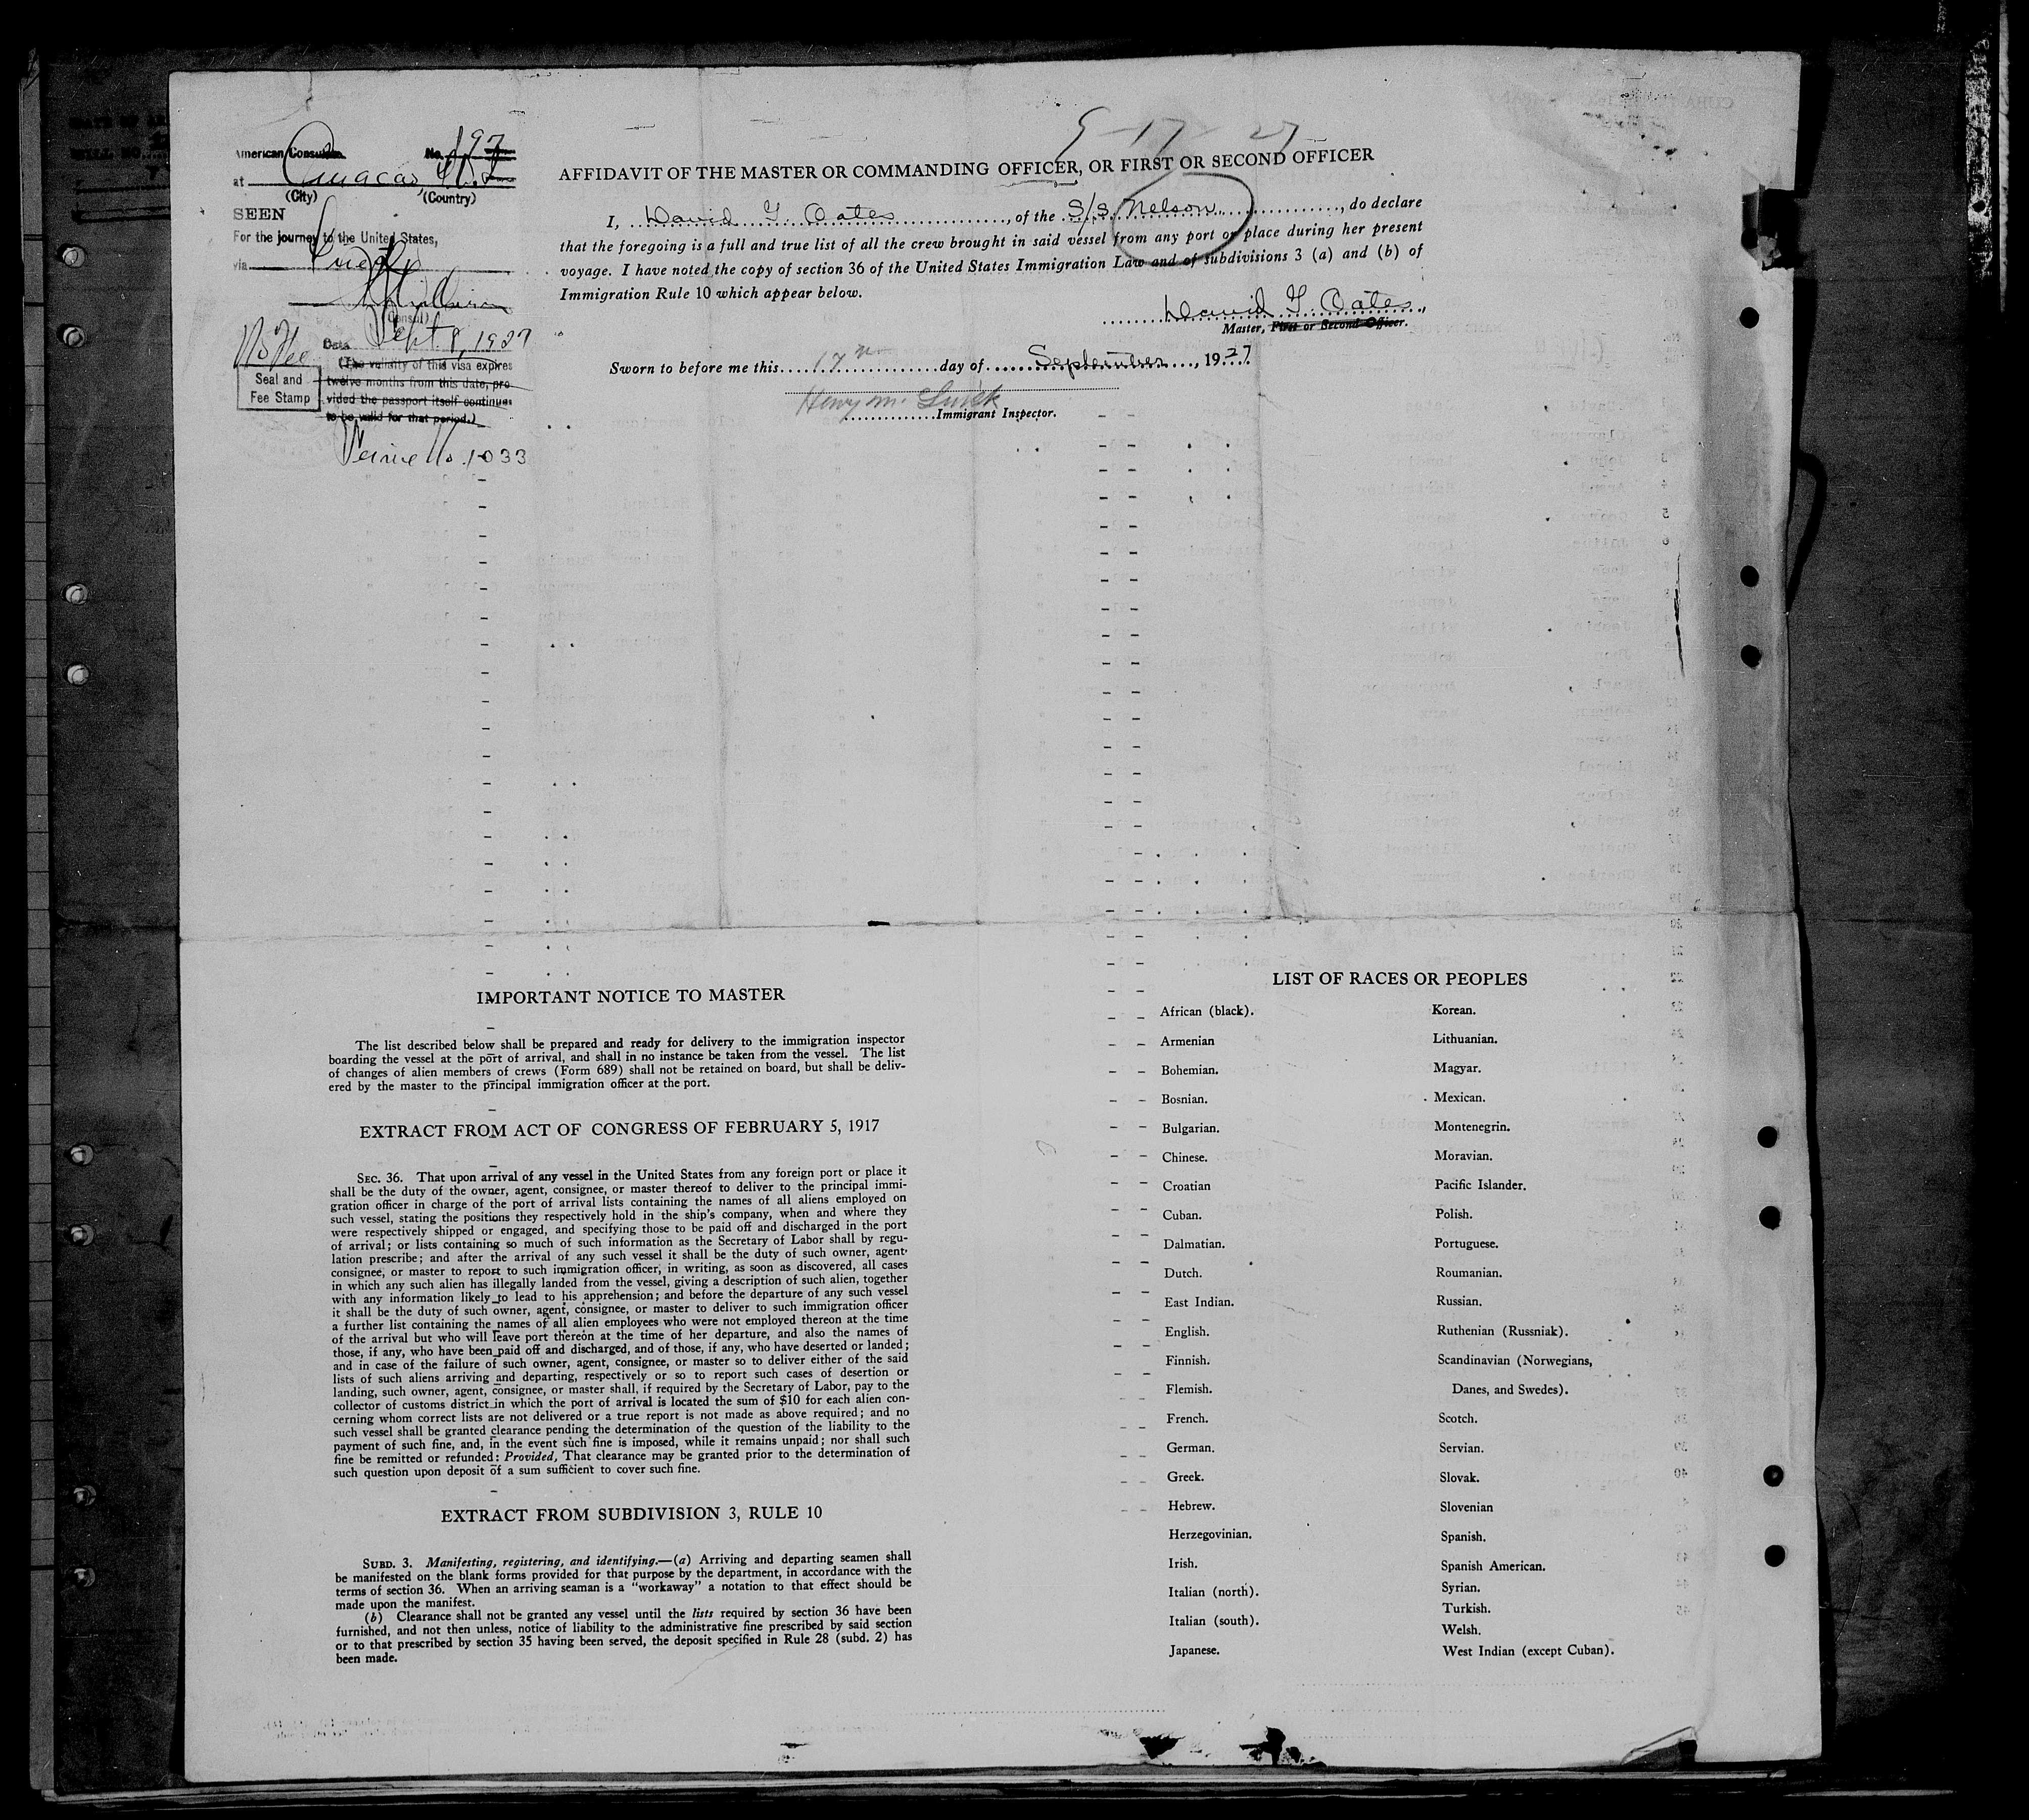 9-17-27
American Consulate No. 197
at Curacao, D.W.I.
(City) (Country)
SEEN
For the journey to the United States,
via
(Consul)
No Fee
Date Sept. 8, 1927
(The validity of this visa expires
twelve months from this date, pro-
vided the passport itself continues
to be valid for that period.)
Seal and
Fee Stamp
Service No. 1033
AFFIDAVIT OF THE MASTER OR COMMANDING OFFICER, OR FIRST OR SECOND OFFICER
I, David G. Oates, of the S/S. Nelson, do declare
that the foregoing is a full and true list of all the crew brought in said vessel from any port or place during her present
voyage. I have noted the copy of section 36 of the United States Immigration Law and of subdivisions 3 (a) and (b) of
Immigration Rule 10 which appear below.
David G. Oates,
Master, First or Second Officer.
Sworn to before me this 17 day of September, 1927
Henry M.
Immigrant Inspector.
IMPORTANT NOTICE TO MASTER
The list described below shall be prepared and ready for delivery to the immigration inspector
boarding the vessel at the port of arrival, and shall in no instance be taken from the vessel. The list
of changes of alien members of crews (Form 689) shall not be retained on board, but shall be deliv-
ered by the master to the principal immigration officer at the port.
EXTRACT FROM ACT OF CONGRESS OF FEBRUARY 5, 1917
SEC. 36. That upon arrival of any vessel in the United States from any foreign port or place it
shall be the duty of the owner, agent, consignee, or master thereof to deliver to the principal immi-
gration officer in charge of the port of arrival lists containing the names of all aliens employed on
such vessel, stating the positions they respectively hold in the ship's company, when and where they
were respectively shipped or engaged, and specifying those to be paid off and discharged in the port
of arrival; or lists containing so much of such information as the Secretary of Labor shall by regu-
lation prescribe; and after the arrival of any such vessel it shall be the duty of such owner, agent,
consignee, or master to report to such immigration officer, in writing, as soon as discovered, all cases
in which any such alien has illegally landed from the vessel, giving a description of such alien, together
with any information likely to lead to his apprehension; and before the departure of any such vessel
it shall be the duty of such owner, agent, consignee, or master to deliver to such immigration officer
a further list containing the names of all alien employees who were not employed thereon at the time
of the arrival but who will leave port thereon at the time of her departure, and also the names of
those, if any, who have been paid off and discharged, and of those, if any, who have deserted or landed;
and in case of the failure of such owner, agent, consignee, or master so to deliver either of the said
lists of such aliens arriving and departing, respectively or so to report such cases of desertion or
landing, such owner, agent, consignee, or master shall, if required by the Secretary of Labor, pay to the
collector of customs district in which the port of arrival is located the sum of $10 for each alien con-
cerning whom correct lists are not delivered or a true report is not made as above required; and no
such vessel shall be granted clearance pending the determination of the question of the liability to the
payment of such fine, and, in the event such fine is imposed, while it remains unpaid; nor shall such
fine be remitted or refunded: Provided, That clearance may be granted prior to the determination of
such question upon deposit of a sum sufficient to cover such fine.
EXTRACT FROM SUBDIVISION 3, RULE 10
SUBD. 3. Manifesting, registering, and identifying.—(a) Arriving and departing seamen shall
be manifested on the blank forms provided for that purpose by the department, in accordance with the
terms of section 36. When an arriving seaman is a "workaway" a notation to that effect should be
made upon the manifest.
(b) Clearance shall not be granted any vessel until the lists required by section 36 have been
furnished, and not then unless, notice of liability to the administrative fine prescribed by said section
or to that prescribed by section 35 having been served, the deposit specified in Rule 28 (subd. 2) has
been made.
LIST OF RACES OR PEOPLES
African (black).
Armenian
Bohemian.
Bosnian.
Bulgarian.
Chinese.
Croatian
Cuban.
Dalmatian.
Dutch.
East Indian.
English.
Finnish.
Flemish.
French.
German.
Greek.
Hebrew.
Herzegovinian.
Irish.
Italian (north).
Italian (south).
Japanese.
Korean.
Lithuanian.
Magyar.
Mexican.
Montenegrin.
Moravian.
Pacific Islander.
Polish.
Portuguese.
Roumanian.
Russian.
Ruthenian (Russniak).
Scandinavian (Norwegians,
Danes, and Swedes).
Scotch.
Servian.
Slovak.
Slovenian
Spanish.
Spanish American.
Syrian.
Turkish.
Welsh.
West Indian (except Cuban).